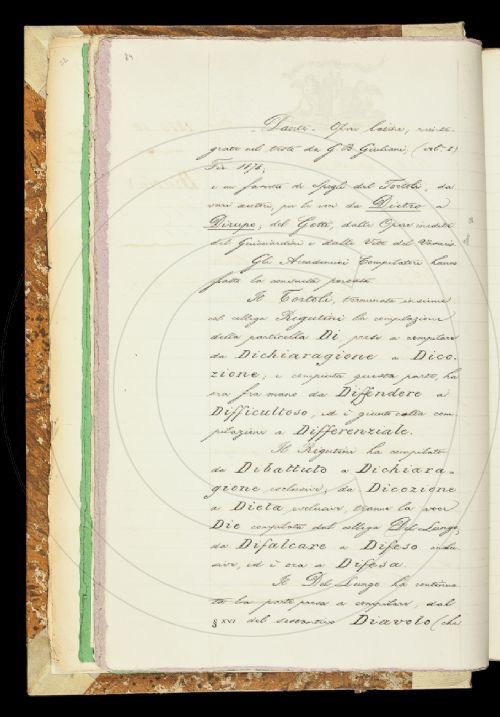 84
Dante. Opere latine, reinte-
grate nel testo da G. B. Giuliani, (vol. I)
Fir. 1878;
e un fascetto di spogli del Tortoli, da
varî autori, per le voci da Dietro a
Dirupo; del Gotti, dalle Opere inedite
del Guicciardini e dalle Vite del Vasari.
Gli Accademici Compilatori hanno
fatto la consueta
Il Tortoli, terminata insieme
col collega Rigutini la compilazione
della particella Di prese a compilare
da Dichiaragione a Dico-
zione; e compiuta questa parte, ha
ora fra mano da Diffendere a
Difficultoso, ed è giunto colla com-
pilazione a Differenziale.
Il Rigutini ha compilato
da Dibattuto a Dichiara-
gione esclusive, da Dicozione
a Dieta esclusive, tranne la voce
Die compilata dal collega Del Lungo,
da Difalcare a Difeso inclu-
sive, ed è ora a Difesa.
Il Del Lungo ha continua-
to la parte presa a compilare, dal
§ XVI del sostantivo Diavolo (che